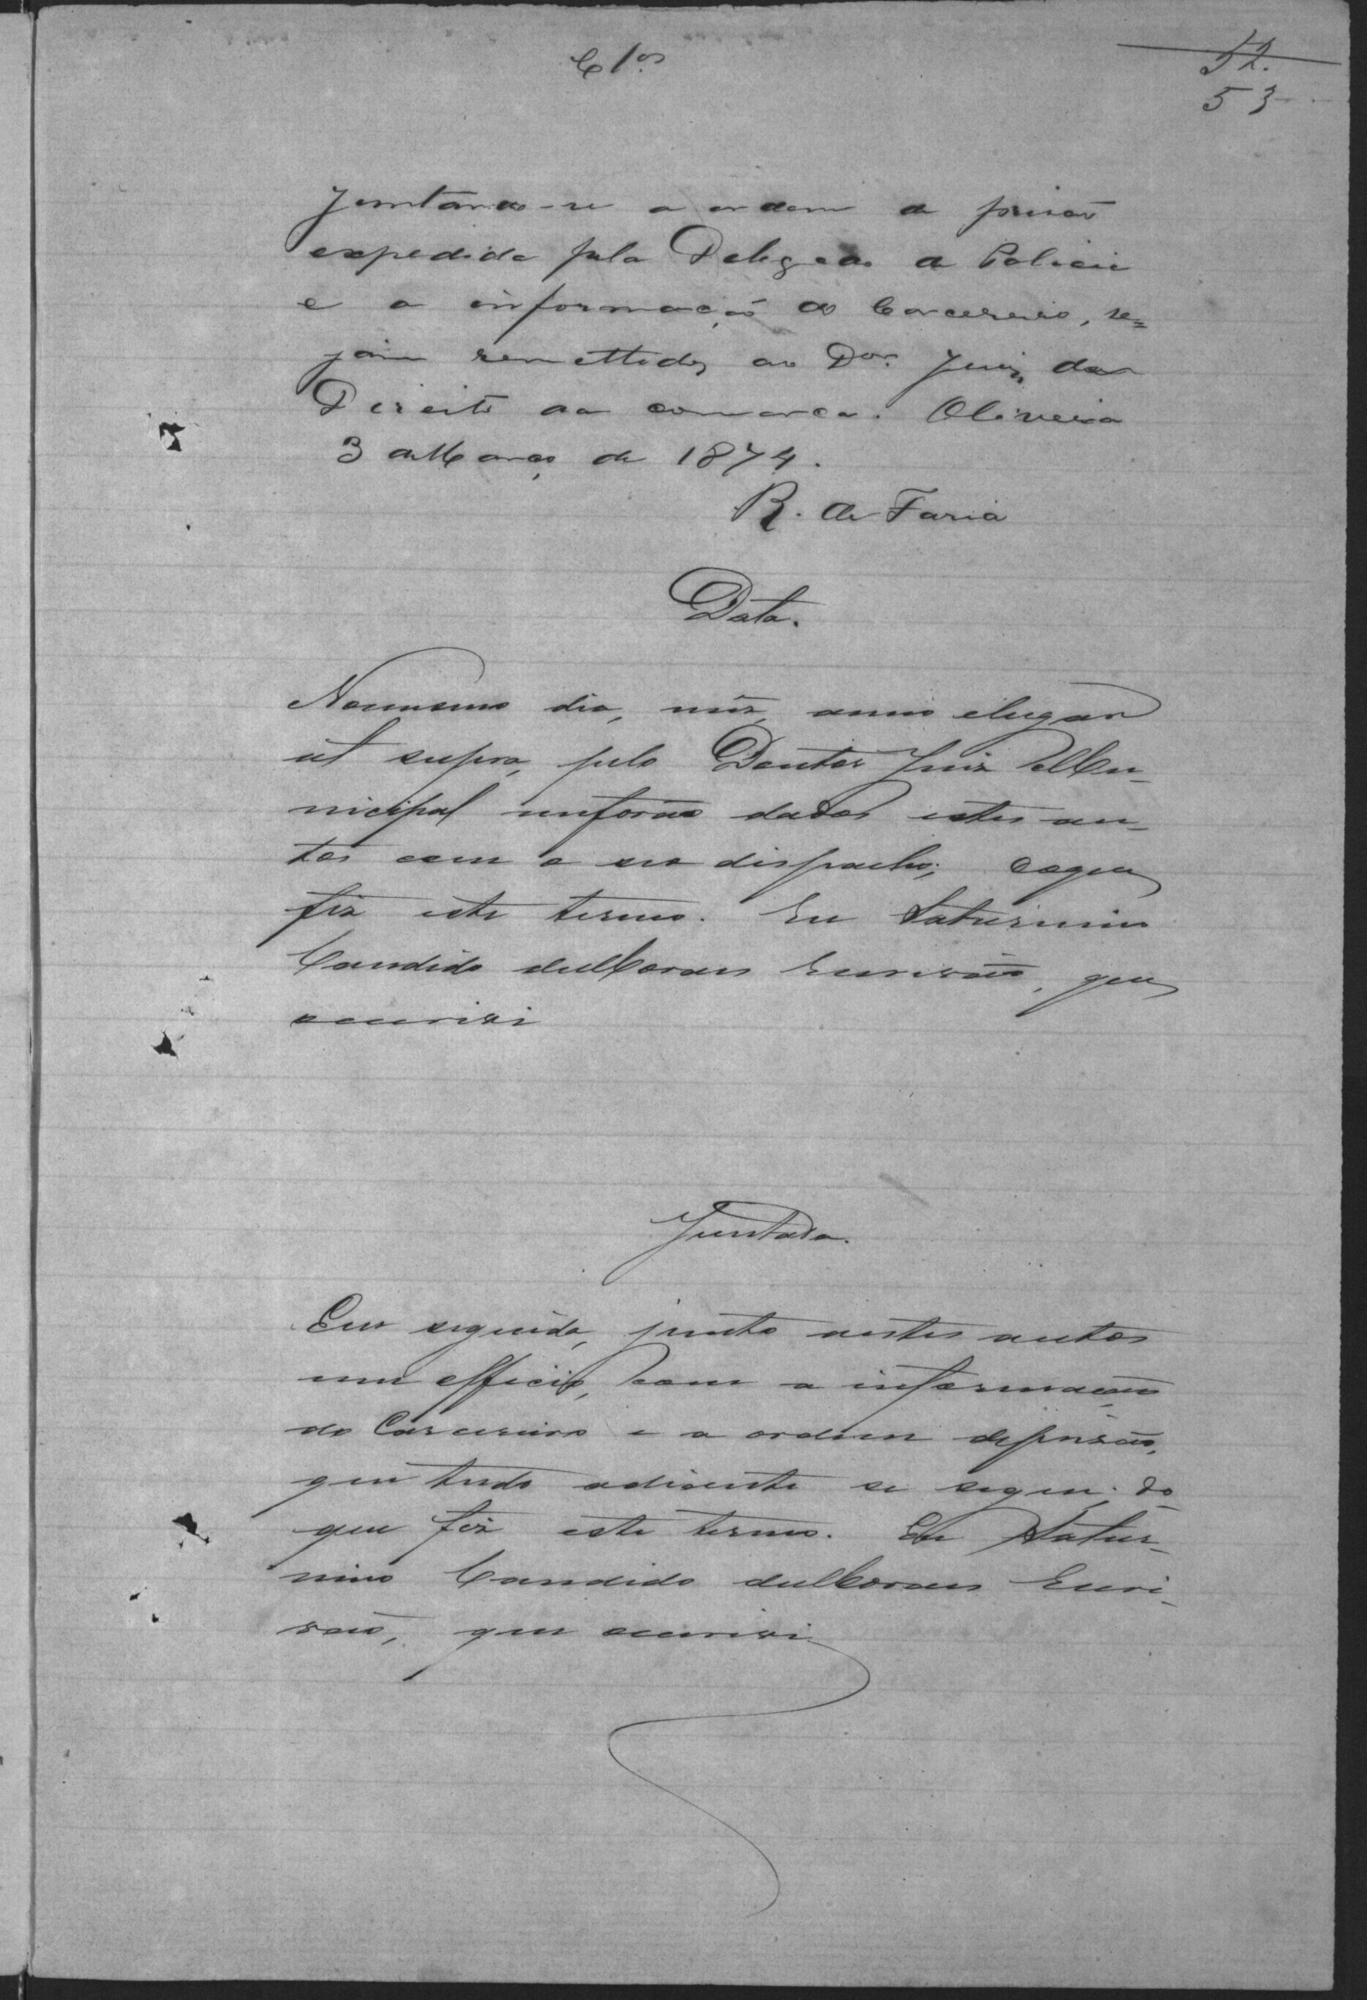 Clos
52.
53
Juntando-se a ordem de prisão
expedida pela Delegcia de Policia
e a informação do Carcereiro, se=
jão remettidos ao Dor. Juiz de
Direito da comarca. Oliveira
3 de Março de 1874.
R. de Faria
Data.
No mesmo dia, mez, anno e lugar
ut supra, pelo Doutor Juiz Mu-
nicipal me forão dados estes au-
tos com o seo dispacho; do que
fiz este termo. Eu Saturnino
Candido de Moraes Escrivão, que
escrivi
Juntada.
Em seguida, junto a estes autos
um officio, com a informação
do Carcereiro e a ordem de prisão,
que tudo adiante se segue; do
que fiz este termo. Eu Satur-
nino Candido de Moraes Escri-
vão, que escrivi